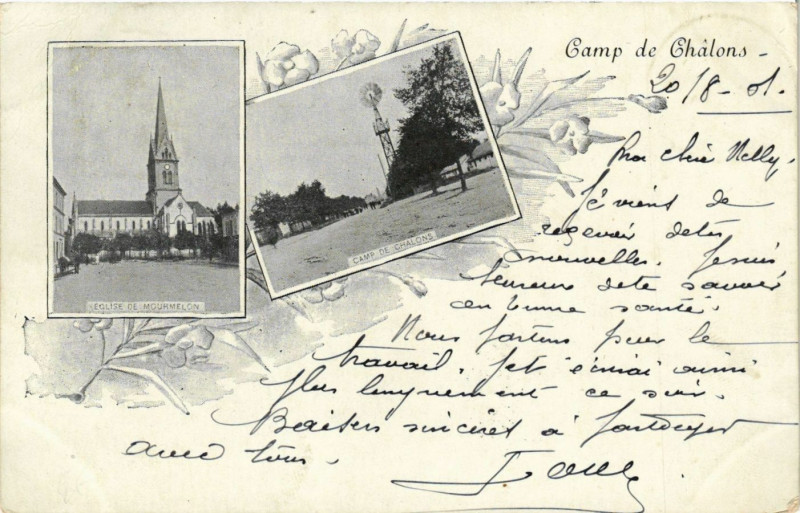 Camp de Châlons -
20/8-01.
Ma chère Nelly,
Je viens de
recevoir de tes
nouvelles. Je suis
heureux de te savoir
en bonne santé.
Nous partons pour le
travail. Je t'écrirai aussi
plus longuement ce soir.
Baisers sincères à partager
avec tous.
EGLISE DE MOURMELON
CAMP DE CHALONS